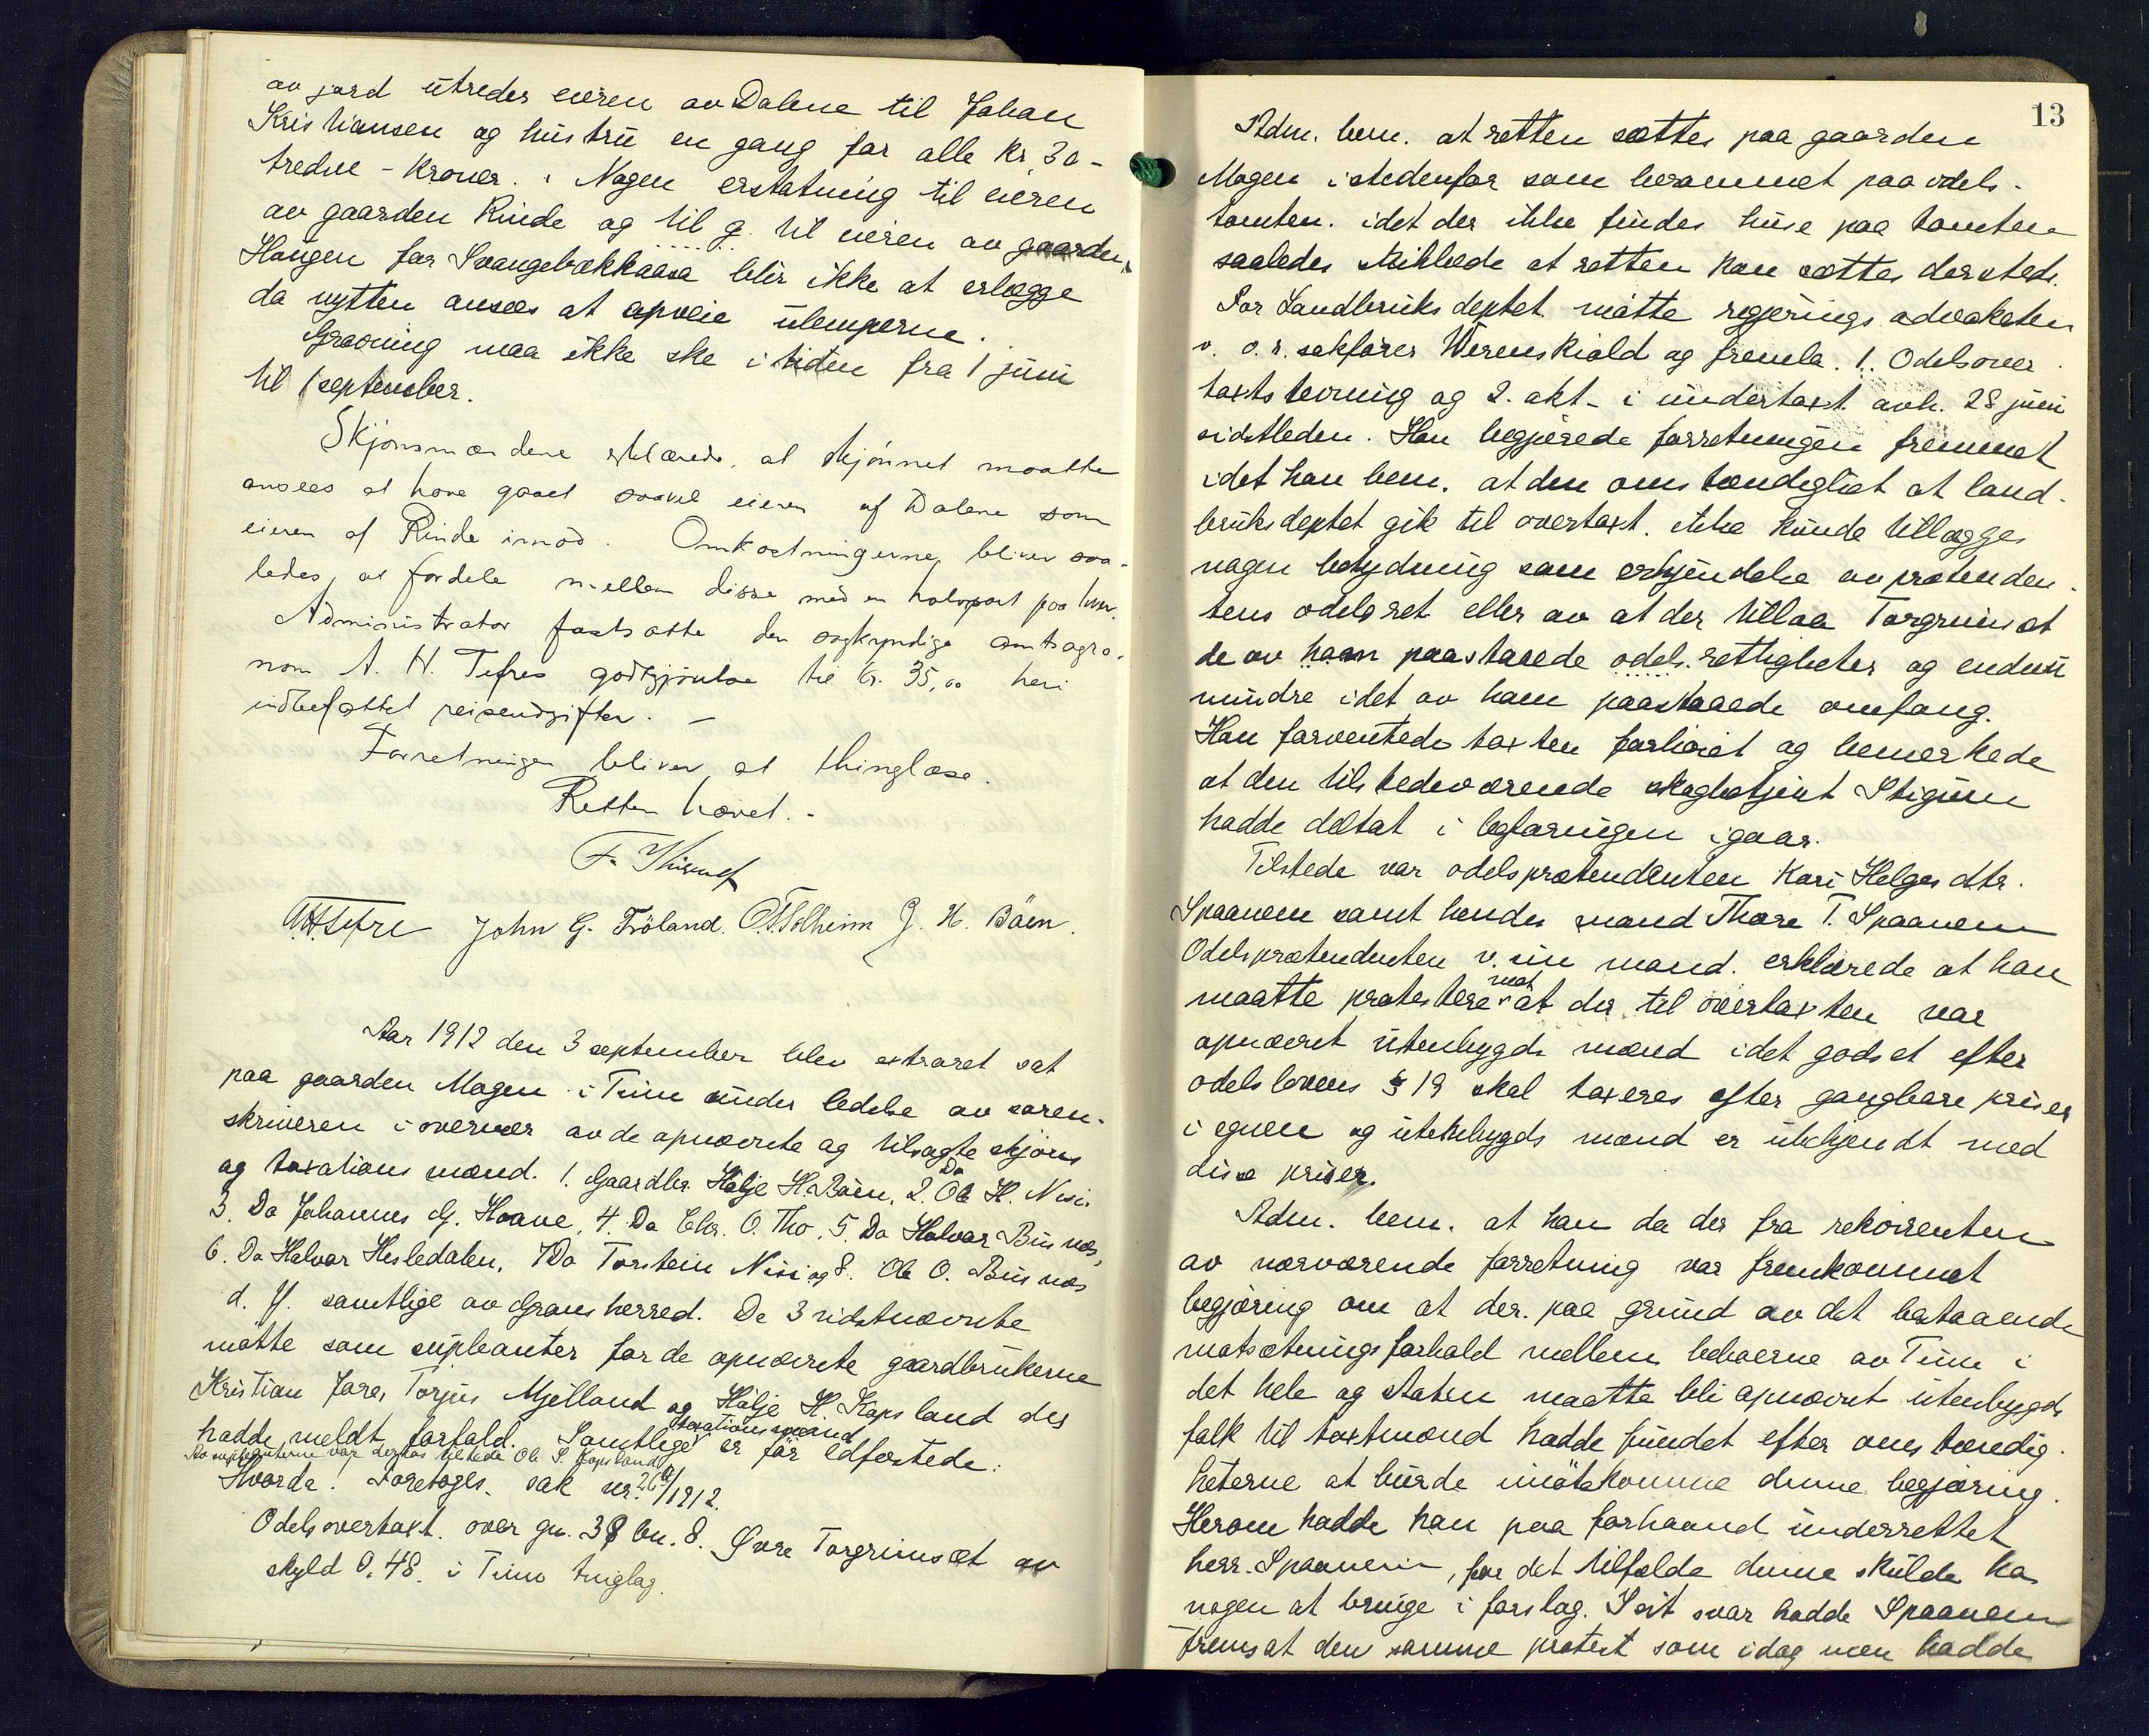 av jord utredes eieren av Dalene til Johan
Kristiansen og hustru en gang for alle kr 30 -
tredve - kroner. Nogen erstatning til eieren
av gaarden Rinde og til g. til eieren av gaarden
Haugen for Svangebækkaasa blir ikke at erlægge
da nytten ansees at opveie ulemperne.
Gravning maa ikke ske i tiden fra 1 juni
til 1 september.
Skjønsmændene erklærede, at skjønnet maatte
ansees at have gaaet saavel eieren af Dalene som
eieren af Rinde imod. Omkostningerne bliver saa-
ledes at fordele mellem disse med en halvpart paa hver.
Administrator fastsatte den sagkyndige amtsagro-
nom A. H. Tefres godtgjørelse til kr. 35,00 heri
indbefattet reiseudgifter. -
Forretningen bliver at thinglæse.
Retten hævet. -
F.
AHTefre John G. Fröland. O.T. Tolheim J. H. Böen.
Aar 1912 den 3 september blev extraret sat
paa gaarden Mogen i Tinn under ledelse av soren-
skriveren i overvær av de opnævnte og tilsagte skjøns
og taxations mænd. 1. Gaardbr. Helje H. Bøen, 2. Do Ole H. Nisi.
3. Do Johannes G. Hoave, 4. Do Chr. O. Tho, 5. Do Halvor Busnæs,
6. Do Halvor Hesledalen, 7 Do Torstein Nisi og 8. Ole O. Busnæs
d. y. samtlige av Grans herred. De 3 sidstnævnte
møtte som supleanter for de opnævnte gaardbrukerne
Kristian Jore, Torjus Mjelland og Helje H. Kopsland der
hadde meldt forfald. Samtlige taxationsmænd er før edfæstede:
Av supleanterne var derhos tilstede Ole S. Kopsland
Hvorda! Foretoges sak nr. 26a/1912.
Odelsovertaxt over gn. 38 bn. 8. Øvre Torgrimsæt av
skyld 0,48 i Tinn tinglag.
13
Adm. bem. at retten sættes paa gaarden
Mogen istedenfor som berammet paa odels-
tomten. idet der ikke findes huse paa tomten
saaledes skikkede at retten kan sættes dersteds.
For Landbruksdeptet møtte regjeringsadvokaten
v. o.r. sakfører Werenskiold og fremla. 1. Odelsover
taxtstevning og 2. akt i undertaxt avh. 28 juni
sidstleden. Han begjærede forretningen fremmet
idet han bem. at den omstændighet at land-
bruksdeptet gik til overtaxt. ikke kunde tillægges
nogen betydning som erkjendelse av prætenden-
tens odelsret eller av at der tillaa Torgrimsæt
de av ham paastaaede odelsrettigheter og endnu
mindre i det av ham paastaaede omfang.
Han forventede taxten forhøiet og bemerkede
at den tilstedeværende skogbetjent Stigum
hadde deltat i befaringen igaar.
Tilstede var odelsprætendenten Kari Helgesdtr.
Spaanem samt hendes mand Thore T. Spaanem
Odelsprætendenten v. sin mand. erklærede at han
maatte protestere mot at der til overtaxten var
opnævnt utenbygds mænd idet godset efter
odelslovens § 19 skal taxeres efter gangbare priser
i egnen og utenbygds mænd er ubekjendt med
disse priser.
Adm. bem. at han da der fra rekvirenten
av nærværende forretning var fremkommet
begjæring om at der paa grund av det bestaaende
motsætningsforhold mellem beboerne av Tinn i
det hele og staten maatte bli opnævnt utenbygds
folk til taxtmænd hadde fundet efter omstændig-
heterne at burde imøtekomme denne begjæring.
Herom hadde han paa forhaand underrettet
herr. Spaanem, for det tilfælde denne skulde ha
nogen at bringe i forslag. I sit svar hadde Spaanem
fremsat den samme protest som idag men hadde